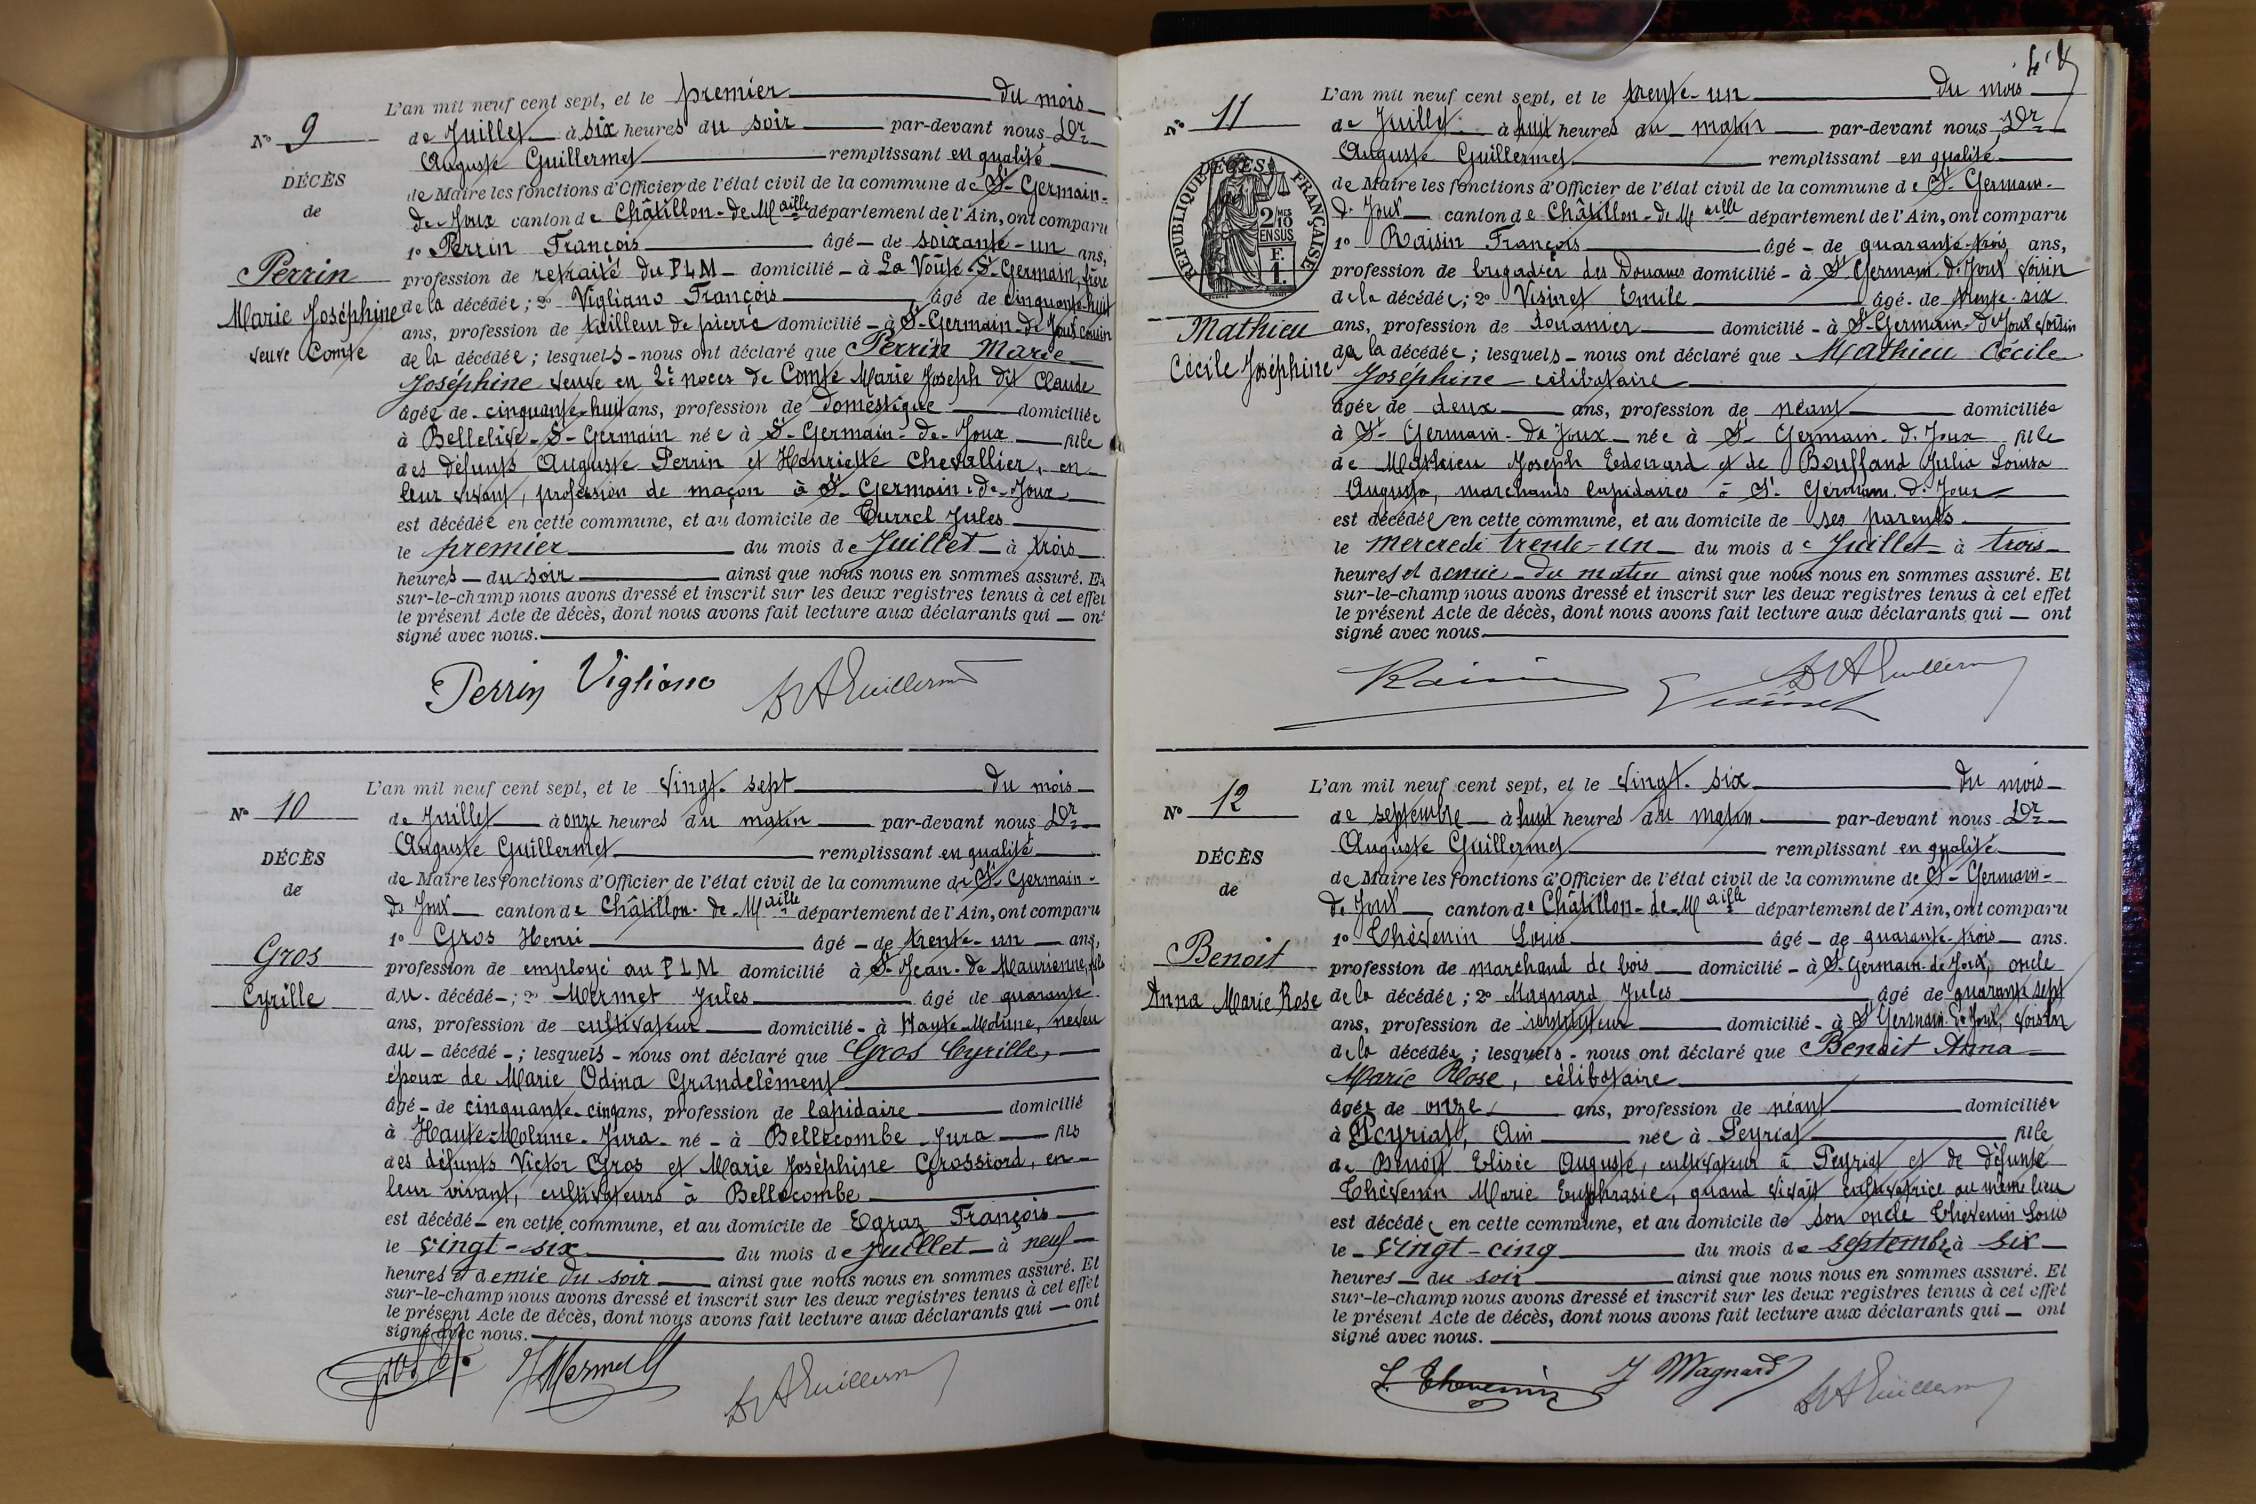 N° 9
DÉCÈS
de
Perrin
Marie Joséphine
veuve Comte
L'an mil neuf cent sept, et le premier du mois
de Juillet à six heures du soir par-devant nous Dr
Auguste Guillermet remplissant en qualité
de Maire les fonctions d'Officier de l'état civil de la commune de St-Germain-
de-Joux canton de Châtillon-de-Maille département de l'Ain, ont comparu
1° Perrin François âgé - de soixante-un ans,
profession de retraité du PLM - domicilié - à La Voûte St-Germain, frère
de la décédée; 2° Vigliano François âgé de cinquante-huit
ans, profession de tailleur de pierre domicilié - à St-Germain-de-Joux cousin
de la décédée; lesquels - nous ont déclaré que Perrin Marie
Joséphine veuve en 2e noces de Comte Marie Joseph dit Claude
âgée de cinquante-huit ans, profession de domestique domiciliée
à Bellelive-St-Germain née à St-Germain-de-Joux fille
des défunts Auguste Perrin et Henriette Chevallier, en
leur vivant, profession de maçon à St-Germain-de-Joux
est décédée en cette commune, et au domicile de Turrel Jules
le premier du mois de Juillet à trois
heures - du soir ainsi que nous nous en sommes assuré. Et
sur-le-champ nous avons dressé et inscrit sur les deux registres tenus à cet effet
le présent Acte de décès, dont nous avons fait lecture aux déclarants qui - ont
signé avec nous.
Perrin Vigliano Dr A Guillermet
N° 10
DÉCÈS
de
Gros
Cyrille
L'an mil neuf cent sept, et le vingt-sept du mois
de Juillet à onze heures du matin par-devant nous Dr
Auguste Guillermet remplissant en qualité
de Maire les fonctions d'Officier de l'état civil de la commune de St-Germain-
de Joux canton de Châtillon-de-Maille département de l'Ain, ont comparu
1° Gros Henri âgé - de trente-un ans,
profession de employé au PLM domicilié à St-Jean-de-Maurienne, fils
du décédé -; 2° Mermet Jules âgé de quarante
ans, profession de cultivateur domicilié - à Haute-Molune, neveu
du - décédé -; lesquels - nous ont déclaré que Gros Cyrille,
époux de Marie Odina Grandclément
âgé - de cinquante-cinq ans, profession de lapidaire domicilié
à Haute-Molune-Jura - né - à Bellecombe-Jura fils
des défunts Victor Gros et Marie Joséphine Grossiord, en
leur vivant, cultivateurs à Bellecombe
est décédé - en cette commune, et au domicile de Egraz François
le vingt-six du mois de juillet à neuf
heures et demie du soir ainsi que nous nous en sommes assuré. Et
sur-le-champ nous avons dressé et inscrit sur les deux registres tenus à cet effet
le présent Acte de décès, dont nous avons fait lecture aux déclarants qui - ont
signé avec nous.
J Mermet Dr A Guillermet
N° 11
RÉPUBLIQUE FRANÇAISE
DÉCÈS
2/10
EN SUS
F.
1.
Mathieu
Cécile Joséphine
L'an mil neuf cent sept, et le trente-un du mois
de Juillet à huit heures du matin par-devant nous Dr
Auguste Guillermet remplissant en qualité
de Maire les fonctions d'Officier de l'état civil de la commune de St Germain-
de Joux canton de Châtillon-de Maille département de l'Ain, ont comparu
1° Raisin François âgé - de quarante-trois ans,
profession de brigadier des Douanes domicilié - à St Germain de Joux voisin
de la décédée; 2° Visinet Emile âgé - de trente-six
ans, profession de douanier domicilié - à St-Germain-de Joux voisin
de la décédée; lesquels - nous ont déclaré que Mathieu Cécile
Joséphine célibataire
âgée de deux ans, profession de néant domiciliée
à St-Germain-de Joux née à St Germain-de Joux fille
de Mathieu Joseph Edouard et de Bouffand Julia Louisa
Augusta, marchands lapidaires à St. Germain de Joux
est décédée en cette commune, et au domicile de ses parents
le mercredi trente-un du mois de Juillet à trois
heures et demie du matin ainsi que nous nous en sommes assuré. Et
sur-le-champ nous avons dressé et inscrit sur les deux registres tenus à cet effet
le présent Acte de décès, dont nous avons fait lecture aux déclarants qui - ont
signé avec nous
Raisin Visinet Dr A Guillermet
N° 12
DÉCÈS
de
Benoit
Anna Marie Rose
L'an mil neuf cent sept, et le vingt-six du mois
de septembre à huit heures du matin par-devant nous Dr
Auguste Guillermet remplissant en qualité
de Maire les fonctions d'Officier de l'état civil de la commune de St-Germain-
de Joux canton de Châtillon-de-Maille département de l'Ain, ont comparu
1° Thévenin Louis âgé - de quarante-trois ans.
profession de marchand de bois domicilié - à St-Germain-de Joux, oncle
de la décédée; 2° Magnard Jules âgé de quarante sept
ans, profession de domicilié - à St Germain de Joux, voisin
de la décédée; lesquels - nous ont déclaré que Benoit Anna
Marie Rose, célibataire
âgée de onze ans, profession de néant domiciliée
à Peyriat, Ain née à Peyriat fille
de Benoît Elisée Auguste, cultivateur à Peyriat et de défunte
Thévenin Marie Euphrasie, quand vivait cultivatrice au même lieu
est décédée en cette commune, et au domicile de son oncle Thévenin Louis
le vingt-cinq du mois de septembre à six
heures - du soir ainsi que nous nous en sommes assuré. Et
sur-le-champ nous avons dressé et inscrit sur les deux registres tenus à cet effet
le présent Acte de décès, dont nous avons fait lecture aux déclarants qui - ont
signé avec nous.
L. Thevenin J Magnard Dr A Guillermet